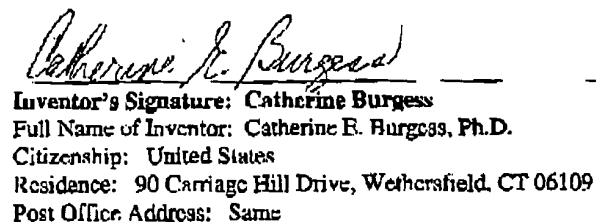 Catherine E. Burgess
Inventor's Signature: Catherine Burgess
Full Name of Inventor: Catherine E. Burgess, Ph.D.
Citizenship: United States
Residence: 90 Carriage Hill Drive, Wethersfield, CT 06109
Post Office Address: Same